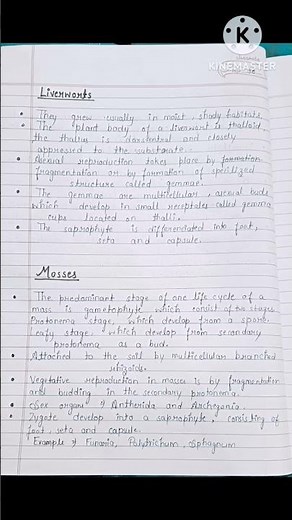 K
KINEMASTER
Liverworts
• They grow usually in moist, shady habitats.
• The plant body of a liverwort is thalloid
the thallus is dorsiventral and closely
appressed to the substrate.
• Asexual reproduction takes place by formation
fragmentation or by formation of specilized
structure called gemmae.
• The gemmae are multicellular, asexual buds
which develop in small receptales called gemma
cups located on thalli.
• The saprophyte is differentiated into foot,
seta and capsule.
Mosses
• The predominant stage of one life cycle of a
moss is gametophyte which consist of two stages
Protonema stage, which develop from a spore.
Leafy stage, which develop from secondary
protonema as a bud.
• Attached to the soil by multicellular branched
rhizoids.
• Vegetative reproduction in mosses is by fragmentation
and budding in the secondary protonema.
• Sex organs → Antherida and Archegonia.
• Zygote develop into a saprophyte, consisting of
foot, seta and capsule.
Example → Funaria, Polytrichum, Sphagnum.